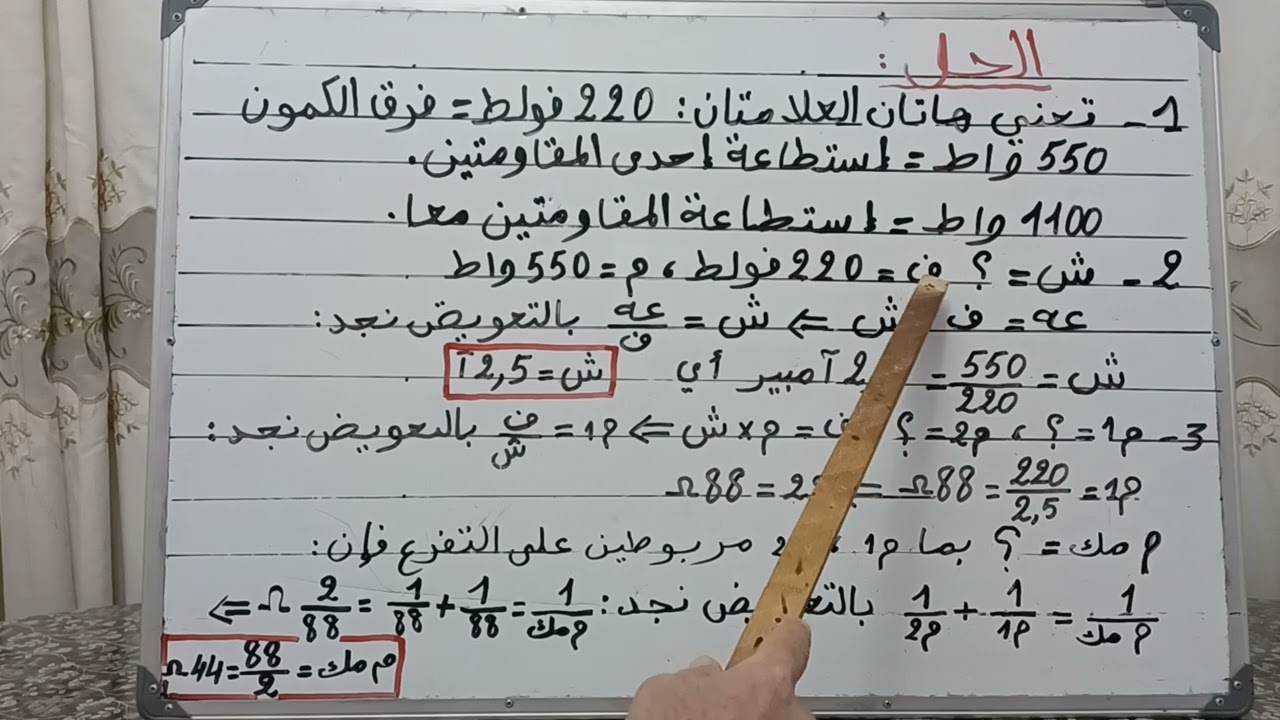 الحل :
1- تعني هاتان العلامتان: 220 فولط = فرق الكمون
550 واط = إستطاعة إحدى المقاومتين.
1100 واط = إستطاعة المقاومتين معا.
2- ش = ؟ ف = 220 فولط ، م = 550 واط
عه = ف ش ⇐ ش = عه/ف بالتعويض نجد:
ش = 550/220 = 2 آمبير أي ش = 2,5 آ
3- م1 = ؟ ، م2 = ؟ ف = م × ش ⇐ م1 = ف/ش بالتعويض نجد:
م1 = 220/2,5 = 88 Ω = 2 = 88 Ω
م مك = ؟ بما م1 ، 2 مربوطين على التفرع فإن:
1/م مك = 1/م1 + 1/م2 بالتعويض نجد: 1/م مك = 1/88 + 1/88 = 2/88 Ω ⇐
م مك = 88/2 = 44 Ω